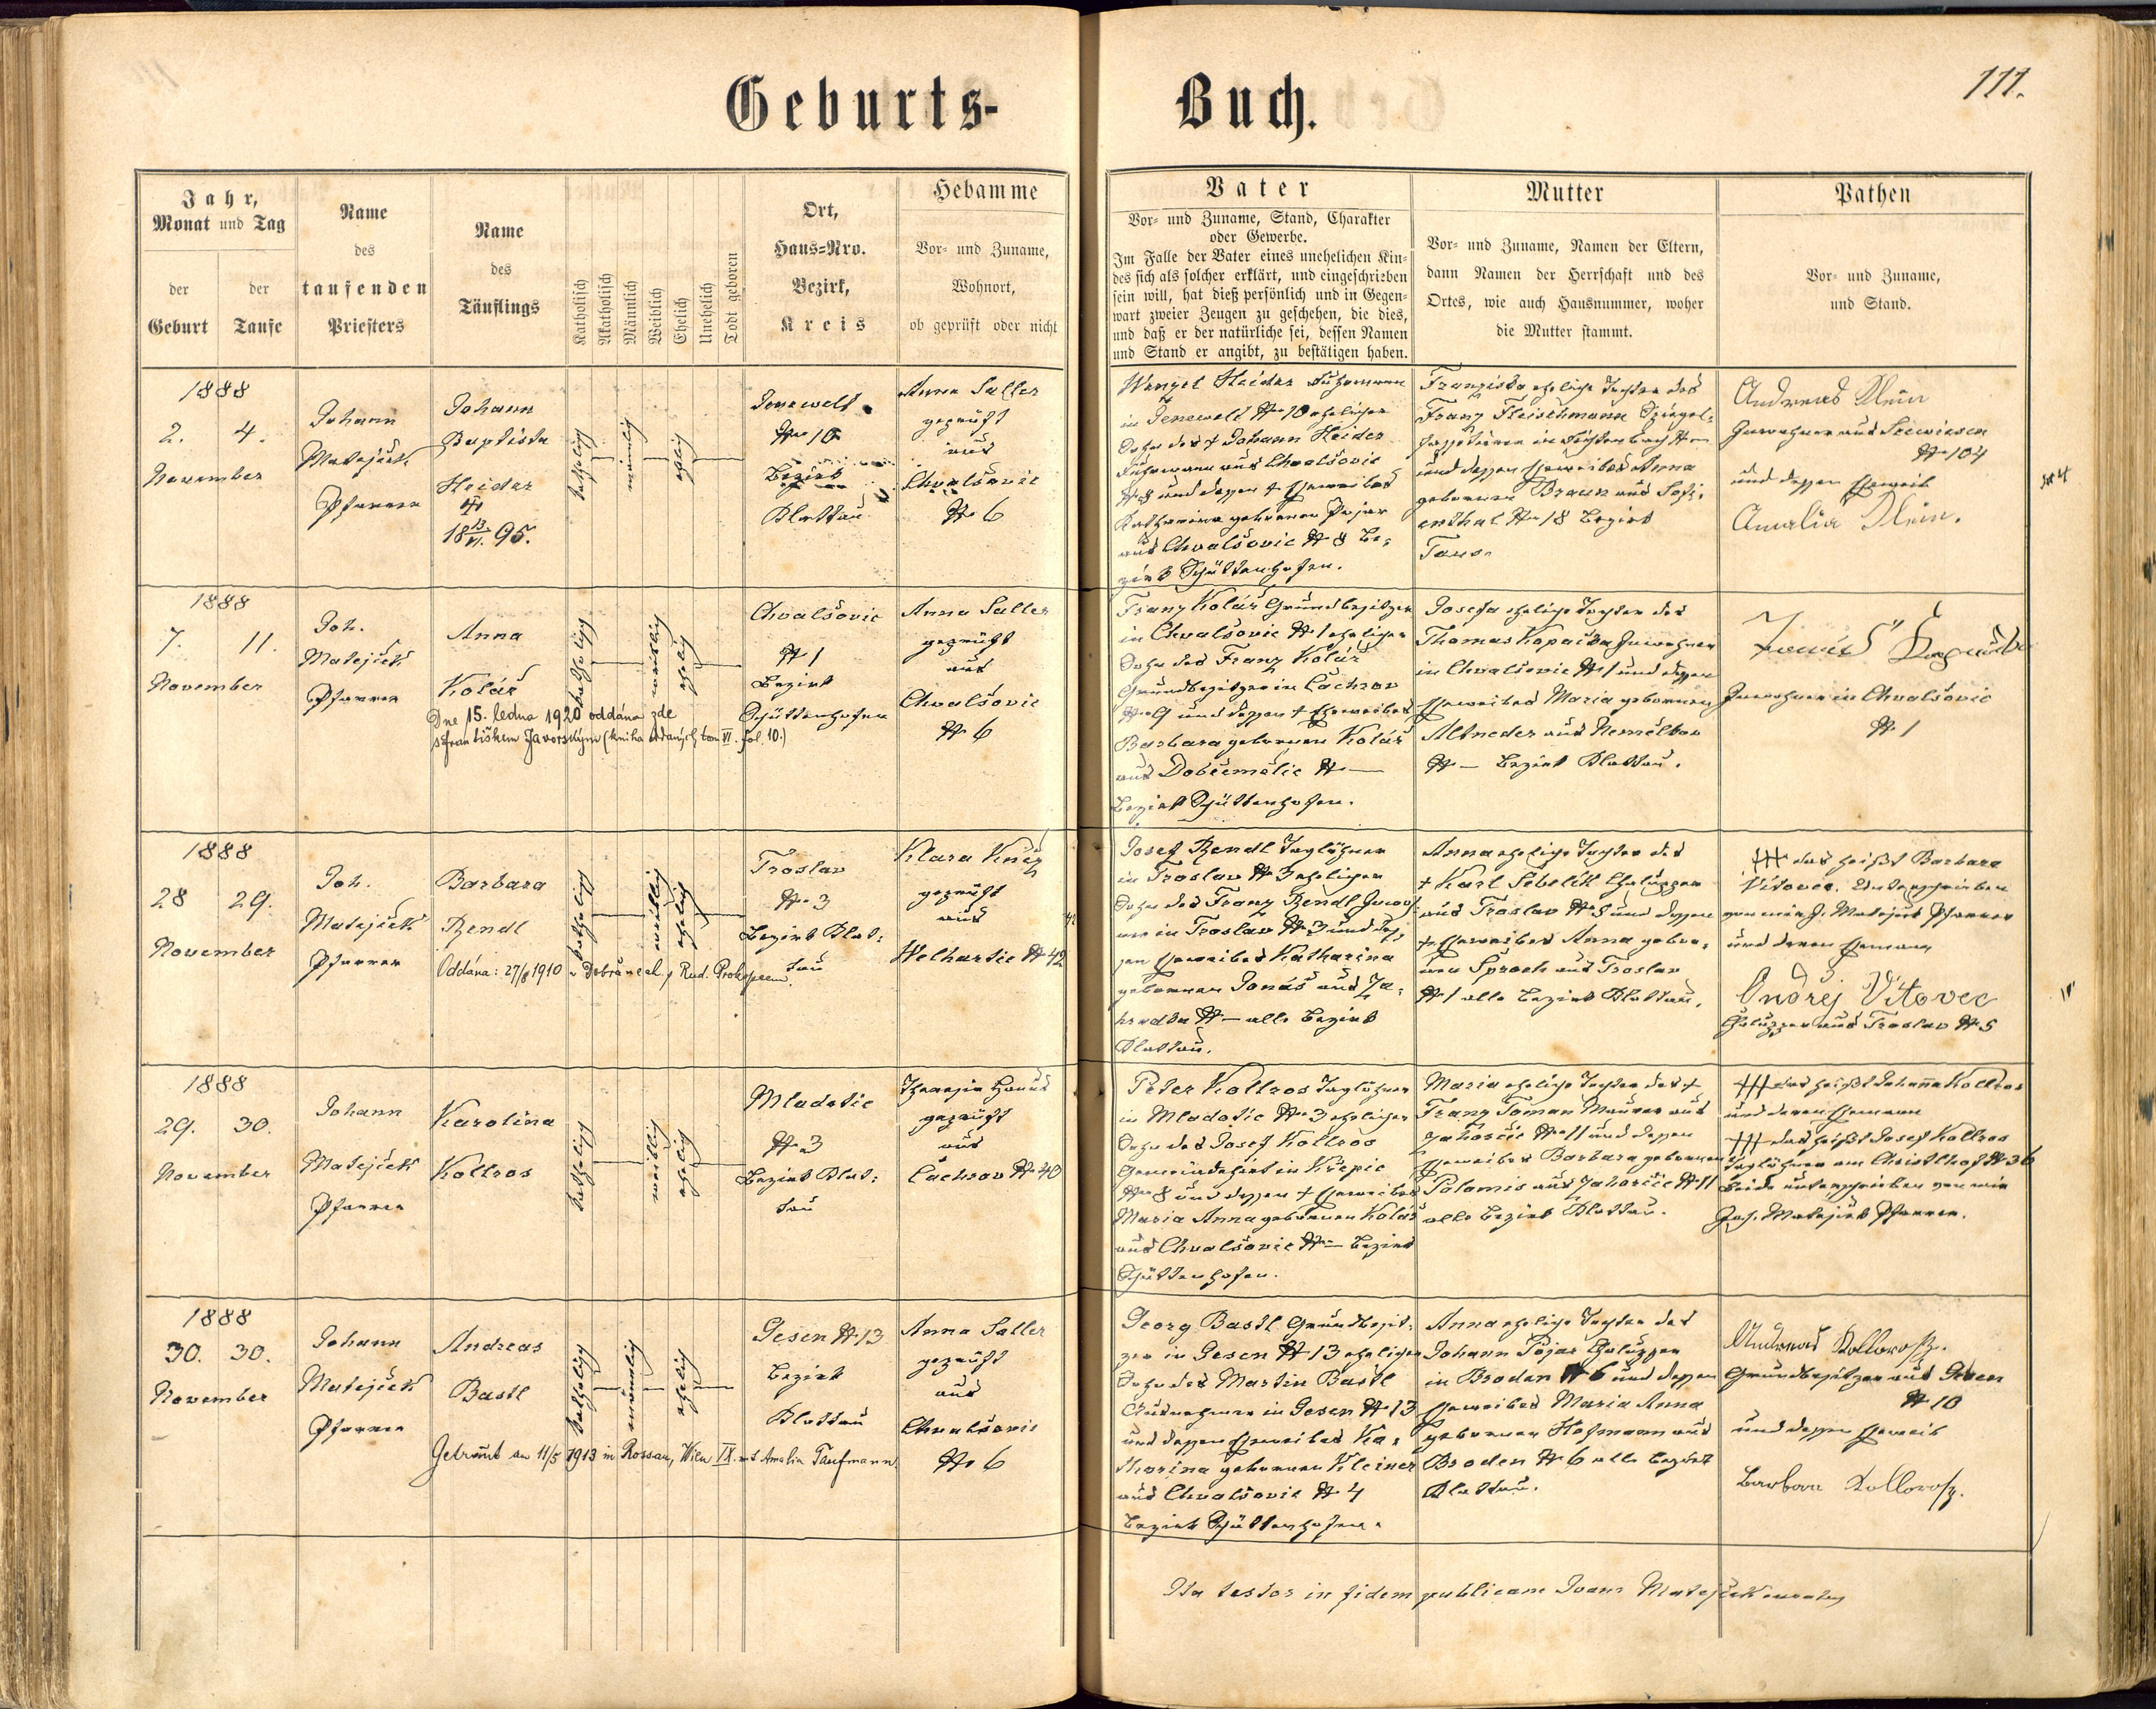 Geburts-
Buch.
111.
Jahr,
Monat und Tag
der
Geburt
der
Taufe
Name
des
taufenden
Priesters
Name
des
Täuflings
Katholisch
Akatholisch
Männlich
Weiblich
Ehelich
Unehelich
Todt geboren
Ort,
Haus-Nro.
Bezirk,
Kreis
Hebamme
Vor- und Zuname,
Wohnort,
ob geprüft oder nicht
Vater
Vor- und Zuname, Stand, Charakter
oder Gewerbe.
Im Falle der Vater eines unehelichen Kin-
des sich als solcher erklärt, und eingeschrieben
sein will, hat dieß persönlich und in Gegen-
wart zweier Zeugen zu geschehen, die dies,
und daß er der natürliche sei, dessen Namen
und Stand er angibt, zu bestätigen haben.
Mutter
Vor- und Zuname, Namen der Eltern,
dann Namen der Herrschaft und des
Ortes, wie auch Hausnummer, woher
die Mutter stammt.
Pathen
Vor- und Zuname,
und Stand.
1888
2. 4.
November
Johann
Matejček
Pfarrer
Johann
Baptista
Heider
18 13/VI. 95.
katholisch
männlich
ehelich
Jenewelt
N 10
Bezirk
Klattau
Anna Saller
geprüft
aus
Chvalšovic
N 6
Wenzel Heider Fuhrmann
in Jenewelt N 10 ehelicher
Sohn des † Johann Heider
Fuhrmann aus Chvalšovic
N 8 und dessen † Eheweibes
Katharina geborenen Pojar
aus Chvalšovic N 8 Be-
zirk Schüttenhofen.
Franziska eheliche Tochter des
Franz Fleischmann
und dessen Eheweibes Anna
geborenen Braun aus Sofi-
enthal N 18 Bezirk
Taus.
Andreas Klein
Inwohner aus Seewiesen
N 104
und dessen Eheweib
Amalia Klein.
1888
7. 11.
November
Joh.
Matejček
Pfarrer
Anna
Kolář
Dne 15. ledna 1920 oddána zde
s Františkem Javorským (kniha oddaných tom VI. fol. 10.)
katholisch
weiblich
ehelich
Chvalšovic
N 1
Bezirk
Schüttenhofen
Anna Saller
geprüft
aus
Chvalšovic
N 6
Franz Kolář Grundbesitzer
in Chvalšovic N 1 ehelicher
Sohn des Franz Kolář
Grundbesitzer in Čachrov
N 9 und dessen † Eheweibes
Barbara geborenen Kolář
aus Dobřemělic N —
Bezirk Schüttenhofen.
Josefa eheliche Tochter des
Thomas Kopačka Inwohner
in Chvalšovic N 1 und dessen
Eheweibes Maria geborenen
Altneder aus Nemělkov
N — Bezirk Klattau.
Inwohner in Chvalšovic
N 1
1888
28 29.
November
Joh.
Matejček
Pfarrer
Barbara
Rendl
Oddána: 27/8 1910 v Dobřanech s Rud. Prokopem.
katholisch
weiblich
ehelich
Troslav
N 3
Bezirk Klat-
tau
Klara Kněz
geprüft
aus
Welhartic N 42
Josef Rendl Taglöhner
in Troslav N 3 ehelicher
Sohn des Franz Rendl Inwoh-
ner in Troslav N 3 und des-
sen Eheweibes Katharina
geborenen Jonáš aus Za-
hrádka N — alle Bezirk
Klattau.
Anna eheliche Tochter des
† Karl Šebelik Chalupper
aus Troslav N 8 und dessen
† Eheweibes Anna gebore-
nen Sproch aus Troslav
N 1 alle Bezirk Klattau.
+++ das heißt Barbara
Vítovec. Unterschrieben
von mir J. Matejček Pfarrer
und deren Ehemann
Ondřej Vítovec
Chalupper aus Troslav N 5
1888
29. 30.
November
Johann
Matejček
Pfarrer
Karolina
Kollros
katholisch
weiblich
ehelich
Mladotic
N 3
Bezirk Klat-
tau
Theresia Hanus
geprüft
aus
Čachrov N 40
Peter Kollros Taglöhner
in Mladotic N 3 ehelicher
Sohn des Josef Kollros
Gemeindehirt in Křepic
N 8 und dessen † Eheweibes
Maria Anna geborenen Kolář
aus Chvalšovic N — Bezirk
Schüttenhofen.
Maria eheliche Tochter des †
Franz Toman Maurer aus
Zahorčic N 11 und dessen
Eheweibes Barbara geborenen
Polamis aus Zahorčic N 11
alle Bezirk Klattau.
+++ das heißt Johanna Kollros
und deren Ehemann
+++ das heißt Josef Kollros
Taglöhner am Christlhof N 36
beide unterschrieben von mir
Joh. Matejček Pfarrer.
1888
30. 30.
November
Johann
Matejček
Pfarrer
Andreas
Bastl
Getraut am 11/5 1913 in Rossau, Wien IX. mit Amalia Taufmann
katholisch
männlich
ehelich
Gesen N 13
Bezirk
Klattau
Anna Saller
geprüft
aus
Chvalšovic
N 6
Georg Bastl Grundbesit-
zer in Gesen N 13 ehelicher
Sohn des Martin Bastl
Ausnehmer in Gesen N 13
und dessen Eheweibes Ka-
tharina geborenen Kleiner
aus Chvalšovic N 4
Bezirk Schüttenhofen.
Anna eheliche Tochter des
Johann Pojar Chalupper
in Broden N 6 und dessen
Eheweibes Maria Anna
geborenen Hofmann aus
Broden N 6 alle Bezirk
Klattau.
Andreas Kolloros.
Grundbesitzer aus Gesen
N 10
und dessen Eheweib
Barbara Kolloros.
Ita testor in fidem publicam Joann Matejček curatus